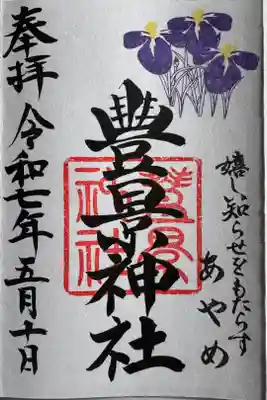 嬉しい知らせをもたらす
あやめ
豐景神社
奉拝 令和七年五月十日